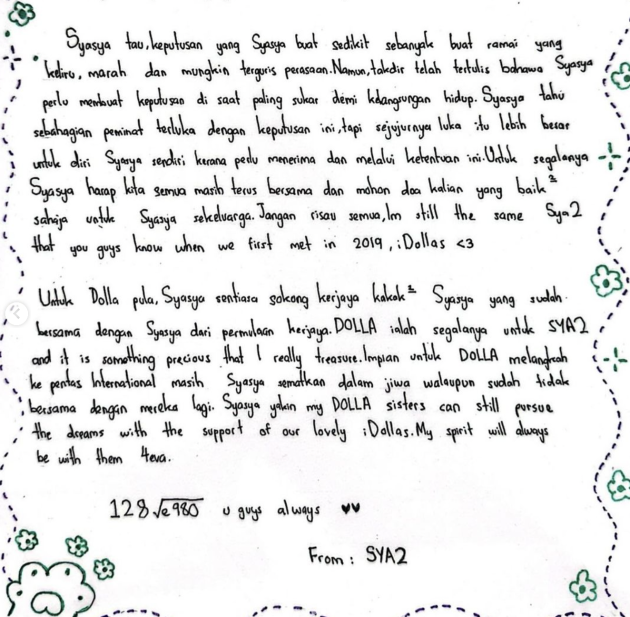 Syasya tau, keputusan yang Syasya buat sedikit sebanyak buat ramai yang
keliru, marah dan mungkin terguris perasaan. Namun, takdir telah tertulis bahawa Syasya
perlu membuat keputusan di saat paling sukar demi kelangsungan hidup. Syasya tahu
sebahagian peminat terluka dengan keputusan ini, tapi sejujurnya luka itu lebih besar
untuk diri Syasya sendiri kerana perlu menerima dan melalui ketentuan ini. Untuk segalanya
Syasya harap kita semua masih terus bersama dan mohon doa kalian yang baik²
sahaja untuk Syasya sekeluarga. Jangan risau semua, Im still the same Sya2
that you guys know when we first met in 2019, iDollas <3
Untuk Dolla pula, Syasya sentiasa sokong kerjaya kakak² Syasya yang sudah
bersama dengan Syasya dari permulaan kerjaya. DOLLA ialah segalanya untuk SYA2
and it is something precious that I really treasure. Impian untuk DOLLA melangkah
ke pentas International masih Syasya sematkan dalam jiwa walaupun sudah tidak
bersama dengan mereka lagi. Syasya yakin my DOLLA sisters can still pursue
the dreams with the support of our lovely iDollas. My spirit will always
be with them 4eva.
128√e980 u guys always ♥♥
From: SYA2